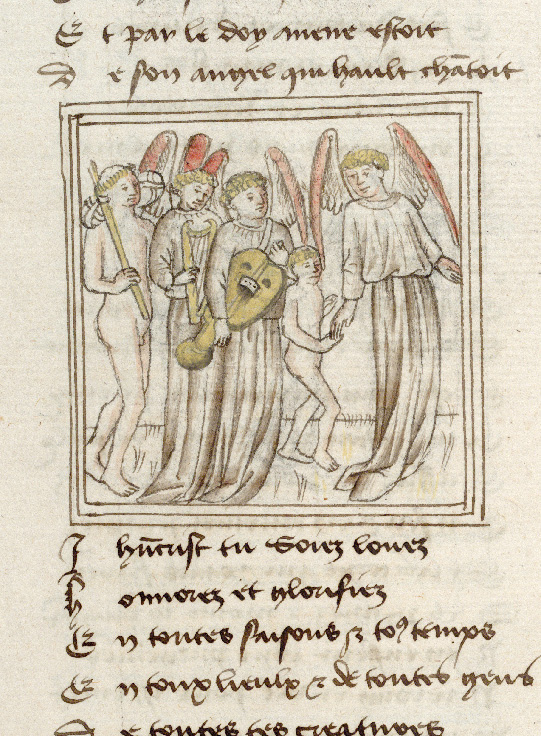 Et par le doy mene estoit
De son angel qui hault chātoit
Ihūcrist tu soiez louez
Honnorez et glorifiez
En toutes saisons & toꝰ temps
En toux lieulx & de toutes gens
De toutes tes creatures